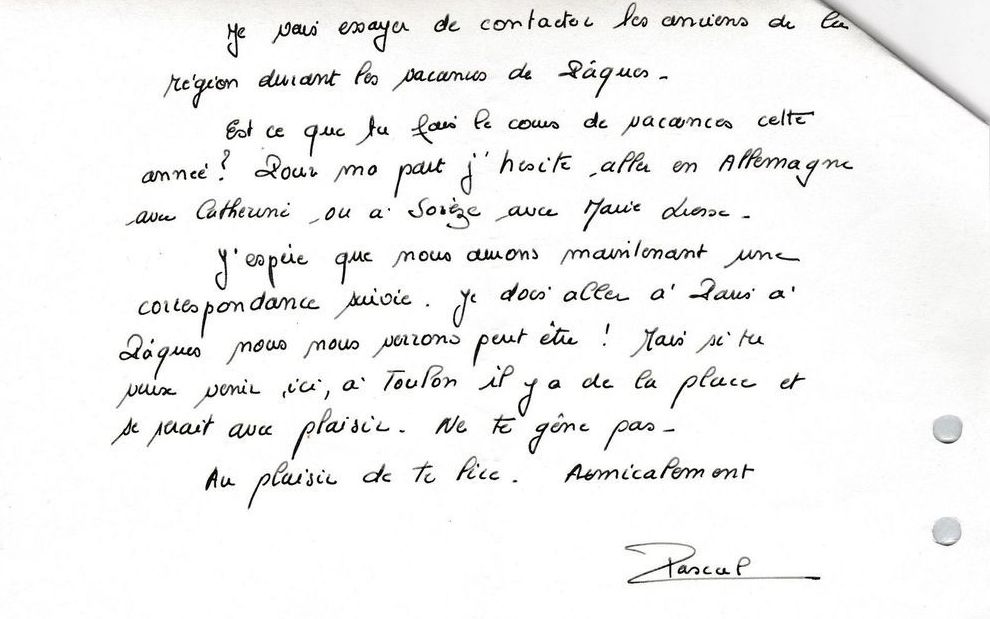 Je vais essayer de contacter les anciens de la
région durant les vacances de Pâques.
Est ce que tu fais le cours de vacances cette
année? Pour ma part j'hesite aller en Allemagne
avec Catherine ou à Sorèze avec Marie Liesse.
J'espère que nous aurons maintenant une
correspondance suivie. Je dois aller à Paris à
Pâques nous nous verrons peut être! Mais si tu
veux venir ici, à Toulon il y a de la place et
se serait avec plaisir. Ne te gêne pas -
Au plaisir de te lire. Amicalement
Pascal